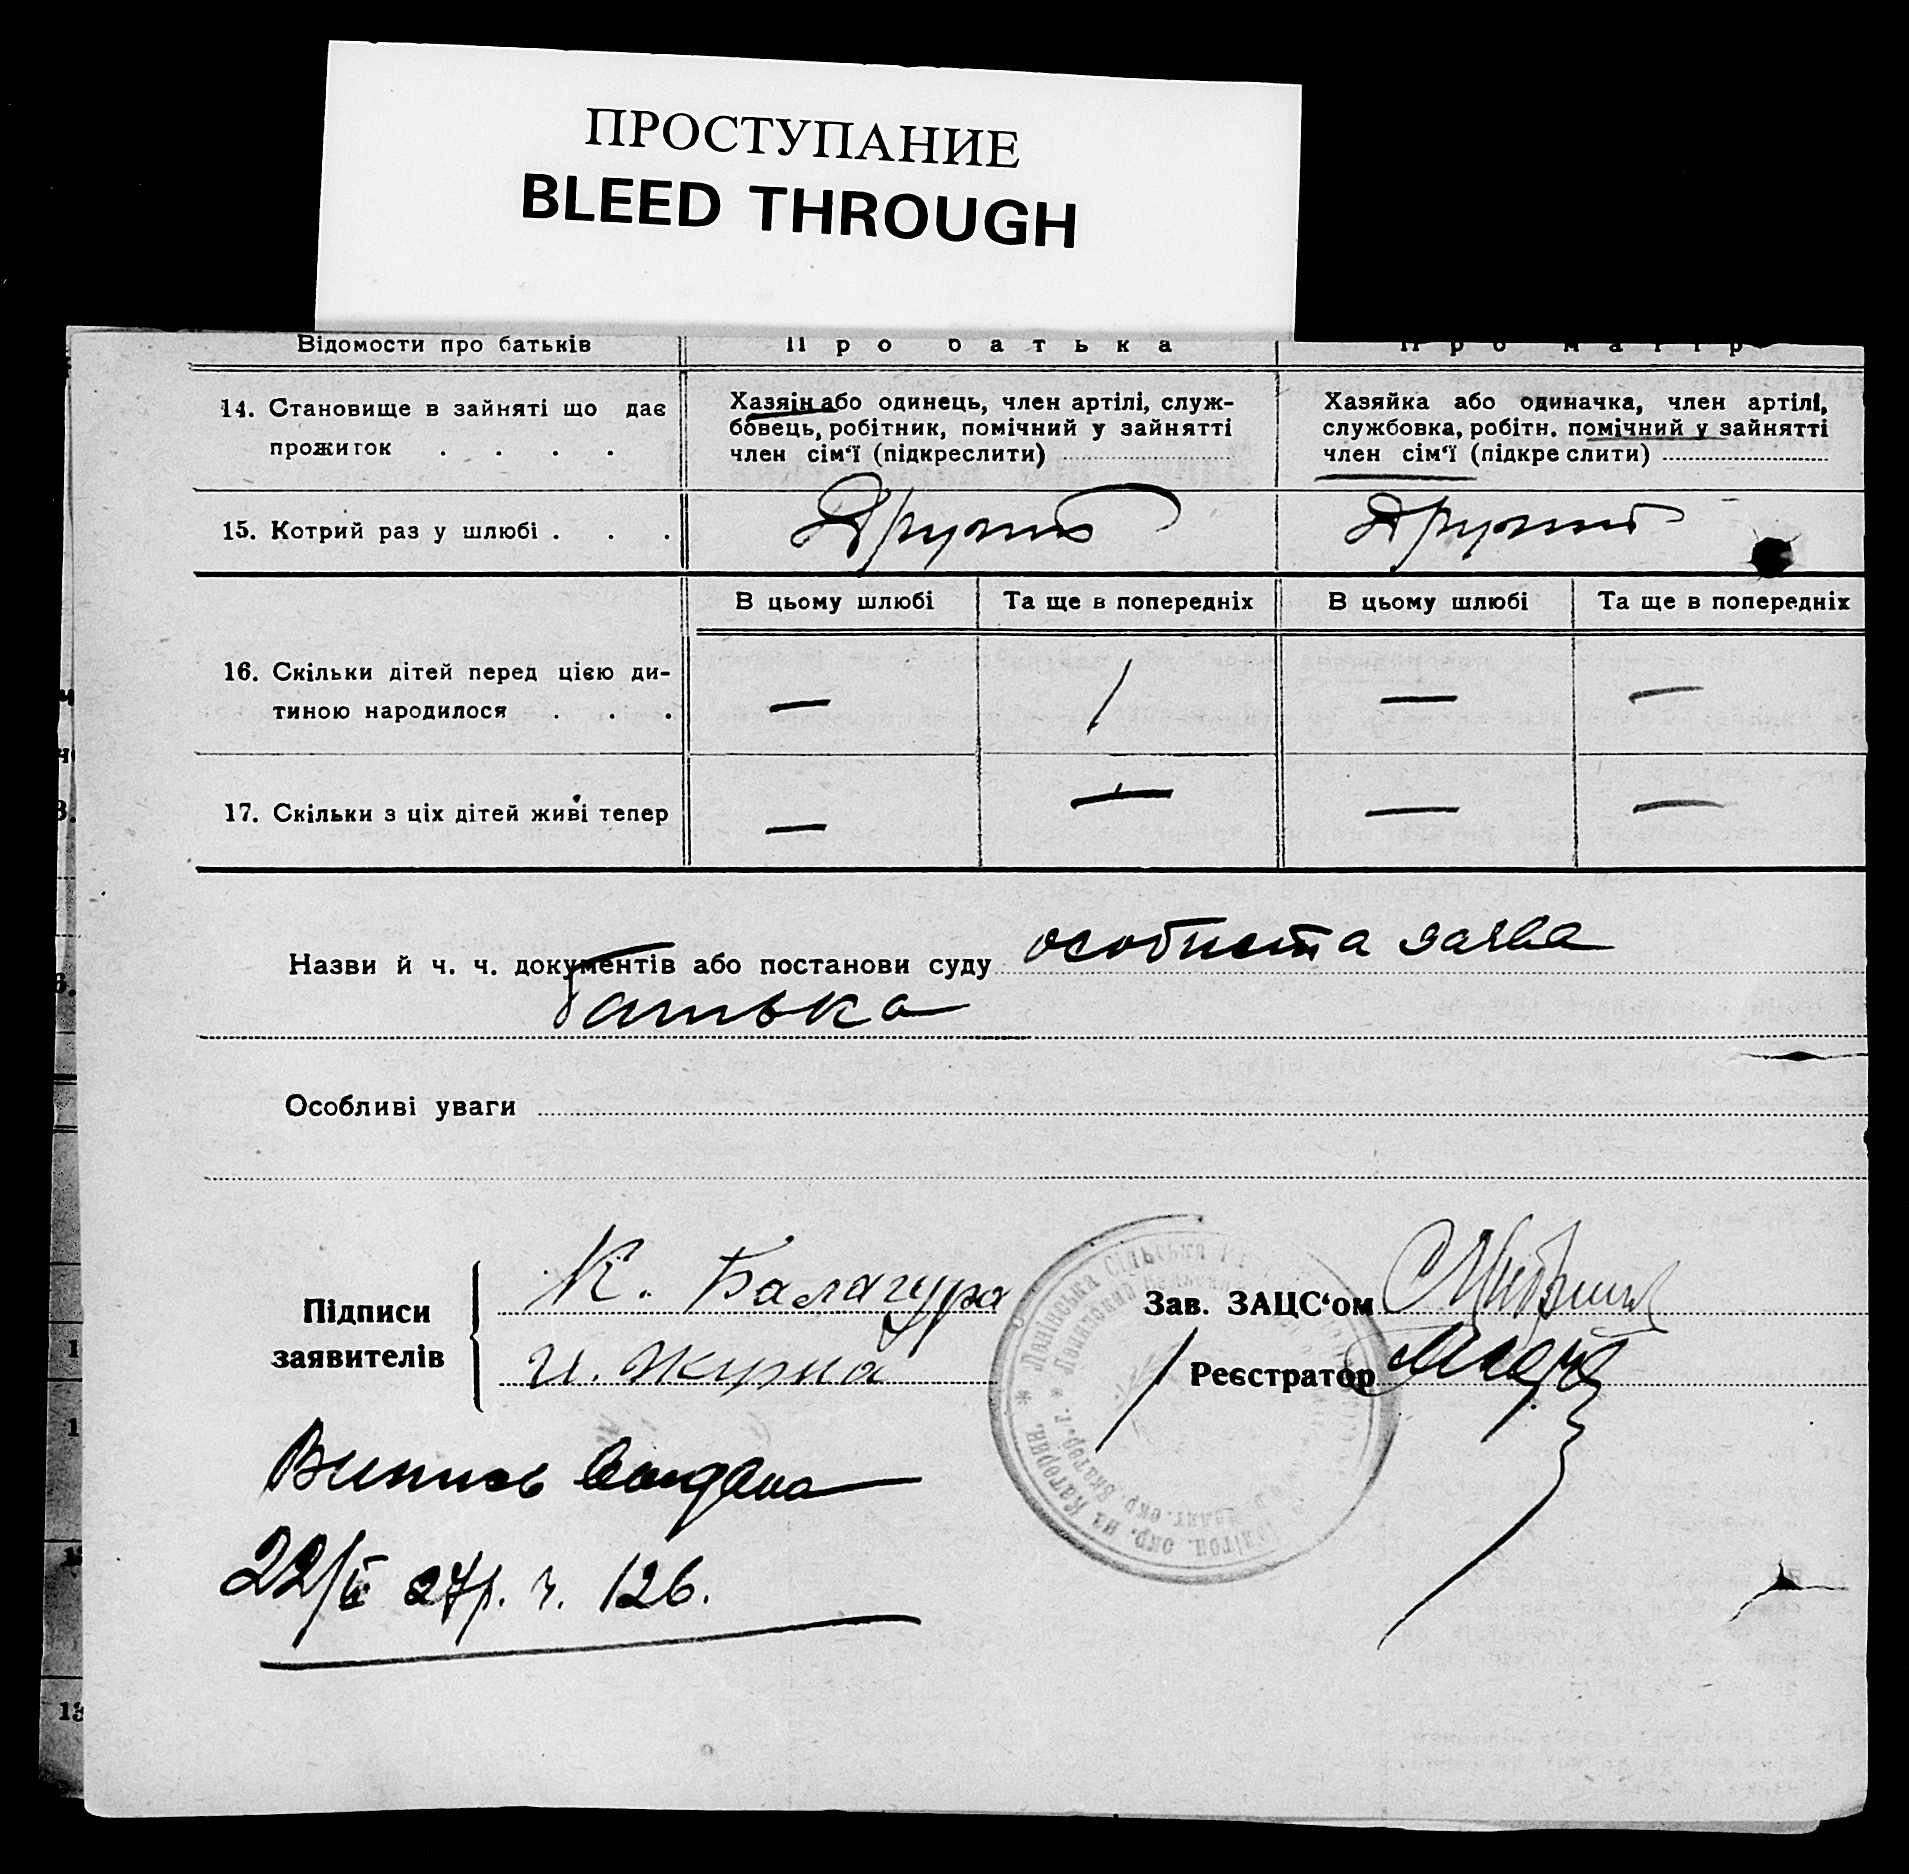 ПРОСТУПАНИЕ
BLEED THROUGH
Відомости про батьків
Про батька
Про матір
14. Становище в зайняті що дає
прожиток . . . .
Хазяін або одинець, член артілі, служ-
бовець, робітник, помічний у зайнятті
член сім‘ї (підкреслити)
Хазяйка або одиначка, член артілі,
службовка, робітн. помічний у зайнятті
член сім‘ї (підкреслити)
15. Котрий раз у шлюбі . . .
Другий
Другий
В цьому шлюбі
Та ще в попередніх
В цьому шлюбі
Та ще в попередніх
16. Скільки дітей перед цією ди-
тиною народилося . . .
— 1 — —
17. Скільки з ціх дітей живі тепер
— — — —
Назви й ч. ч. документів або постанови суду особиста заява
батька
Особливі уваги
Підписи
заявителів
К. Балагура
Зав. ЗАЦС‘ом
Реєстратор
Випись
22/ 27р. ч. 126.